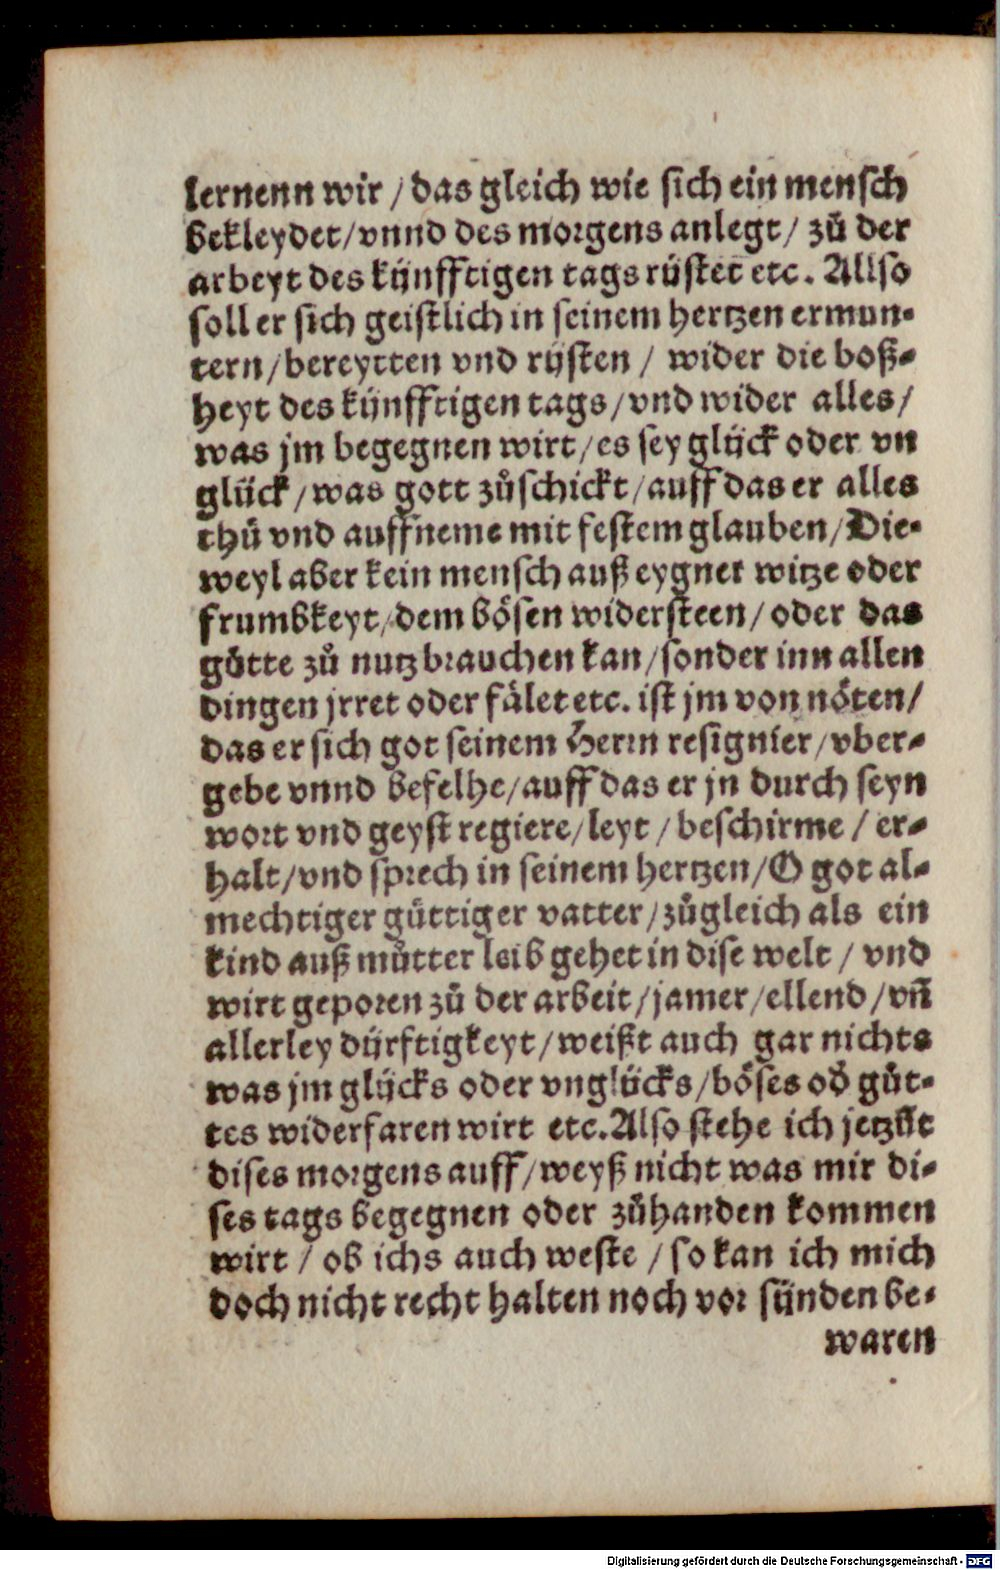 lernenn wir / das gleich wie sich ein mensch
bekleydet / vnnd des morgens anlegt / zů der
arbeyt des künfftigen tags rüstet etc. Allso
soll er sich geistlich in seinem hertzen ermun⸗
tern / bereytten vnd rüsten / wider die boß⸗
heyt des künfftigen tags / vnd wider alles /
was jm begegnen wirt / es sey glück oder vn
glück / was gott zůschickt / auff das er alles
thů vnd auffneme mit festem glauben / Die⸗
weyl aber kein mensch auß eygner witze oder
frumbkeyt / dem bösen widersteen / oder das
gůtte zů nutz brauchen kan / sonder inn allen
dingen jrret oder fälet etc. ist jm von nöten /
das er sich got seinem Herrn resignier / vber⸗
gebe vnnd befelhe / auff das er jn durch seyn
wort vnd geyst regiere / leyt / beschirme / er⸗
halt / vnd sprech in seinem hertzen / O got al⸗
mechtiger güttiger vatter / zůgleich als ein
kind auß můtter leib gehet in dise welt / vnd
wirt geporen zů der arbeit / jamer / ellend / vñ
allerley dürftigkeyt / weißt auch gar nichts
was jm glücks oder vnglücks / böses oď gůt⸗
tes widerfaren wirt etc. Also stehe ich jetzůt
dises morgens auff / weyß nicht was mir di⸗
ses tags begegnen oder zůhanden kommen
wirt / ob ichs auch weste / so kan ich mich
doch nicht recht halten noch vor sünden be⸗
waren
Digitalisierung gefördert durch die Deutsche Forschungsgemeinschaft - DFG